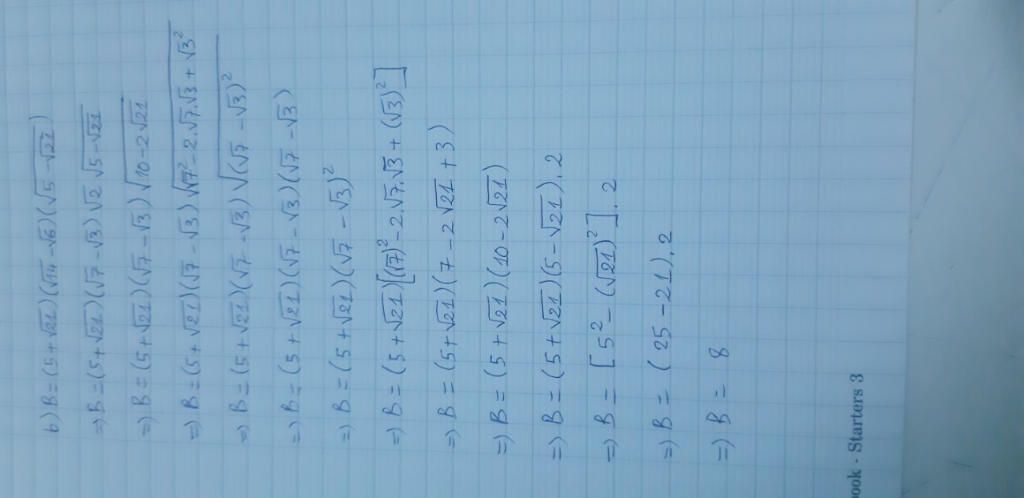 b) B = (5+√21)(√14 - √6)(√5 - √21)
=) B = (5+√21)(√7 - √3)√2 √5-√21
=) B = (5+√21)(√7 - √3)√10-2√21
=) B = (5+√21)(√7 - √3)√√7² - 2.√7.√3 + √3²
=) B = (5+√21)(√7 - √3)√(√7 - √3)²
=) B = (5+√21)(√7 - √3)(√7 - √3)
=) B = (5+√21)(√7 - √3)²
=) B = (5+√21)[(√7)² - 2.√7.√3 + (√3)²]
=) B = (5+√21)(7 - 2√21 + 3)
=) B = (5+√21)(10 - 2√21)
=) B = (5+√21)(5 - √21).2
=) B = [5² - (√21)²].2
=) B = (25 - 21).2
=) B = 8
ook - Starters 3